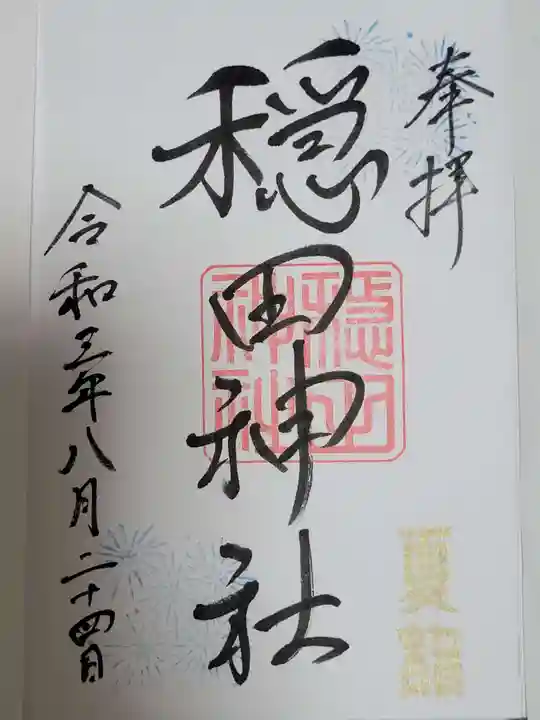 奉拝
穏田神社
令和三年八月二十四日
穏田神社
夏詣